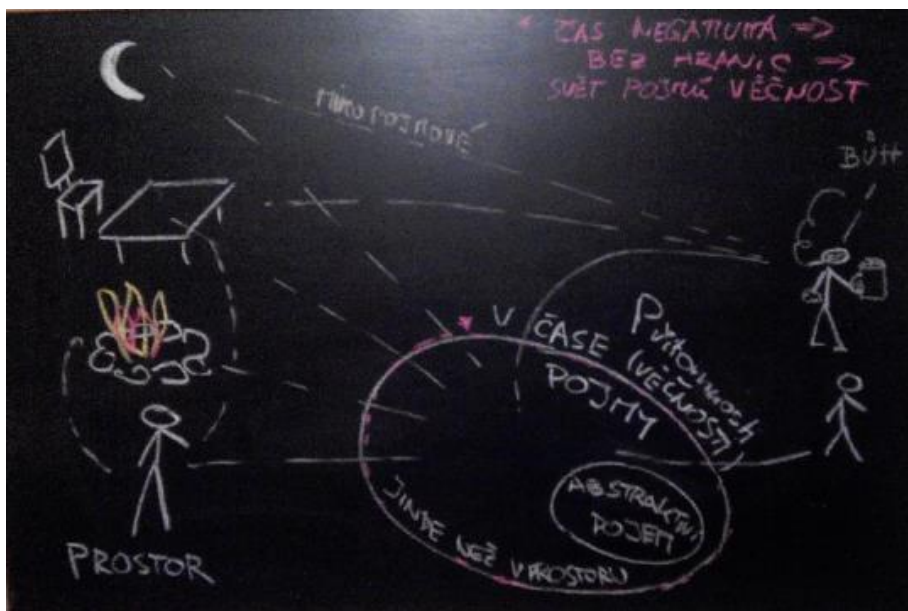 * ČAS NEGATIVITA =>
BEZ HRANIC =>
SVĚT POJMŮ VĚČNOST
MIMOPOJMOVÉ
BŮH
V ČASE
POJMY
(VĚČNOSTI)
ABSTRAKTNÍ
POJEM
JINDE NEŽ V PROSTORU
PROSTOR